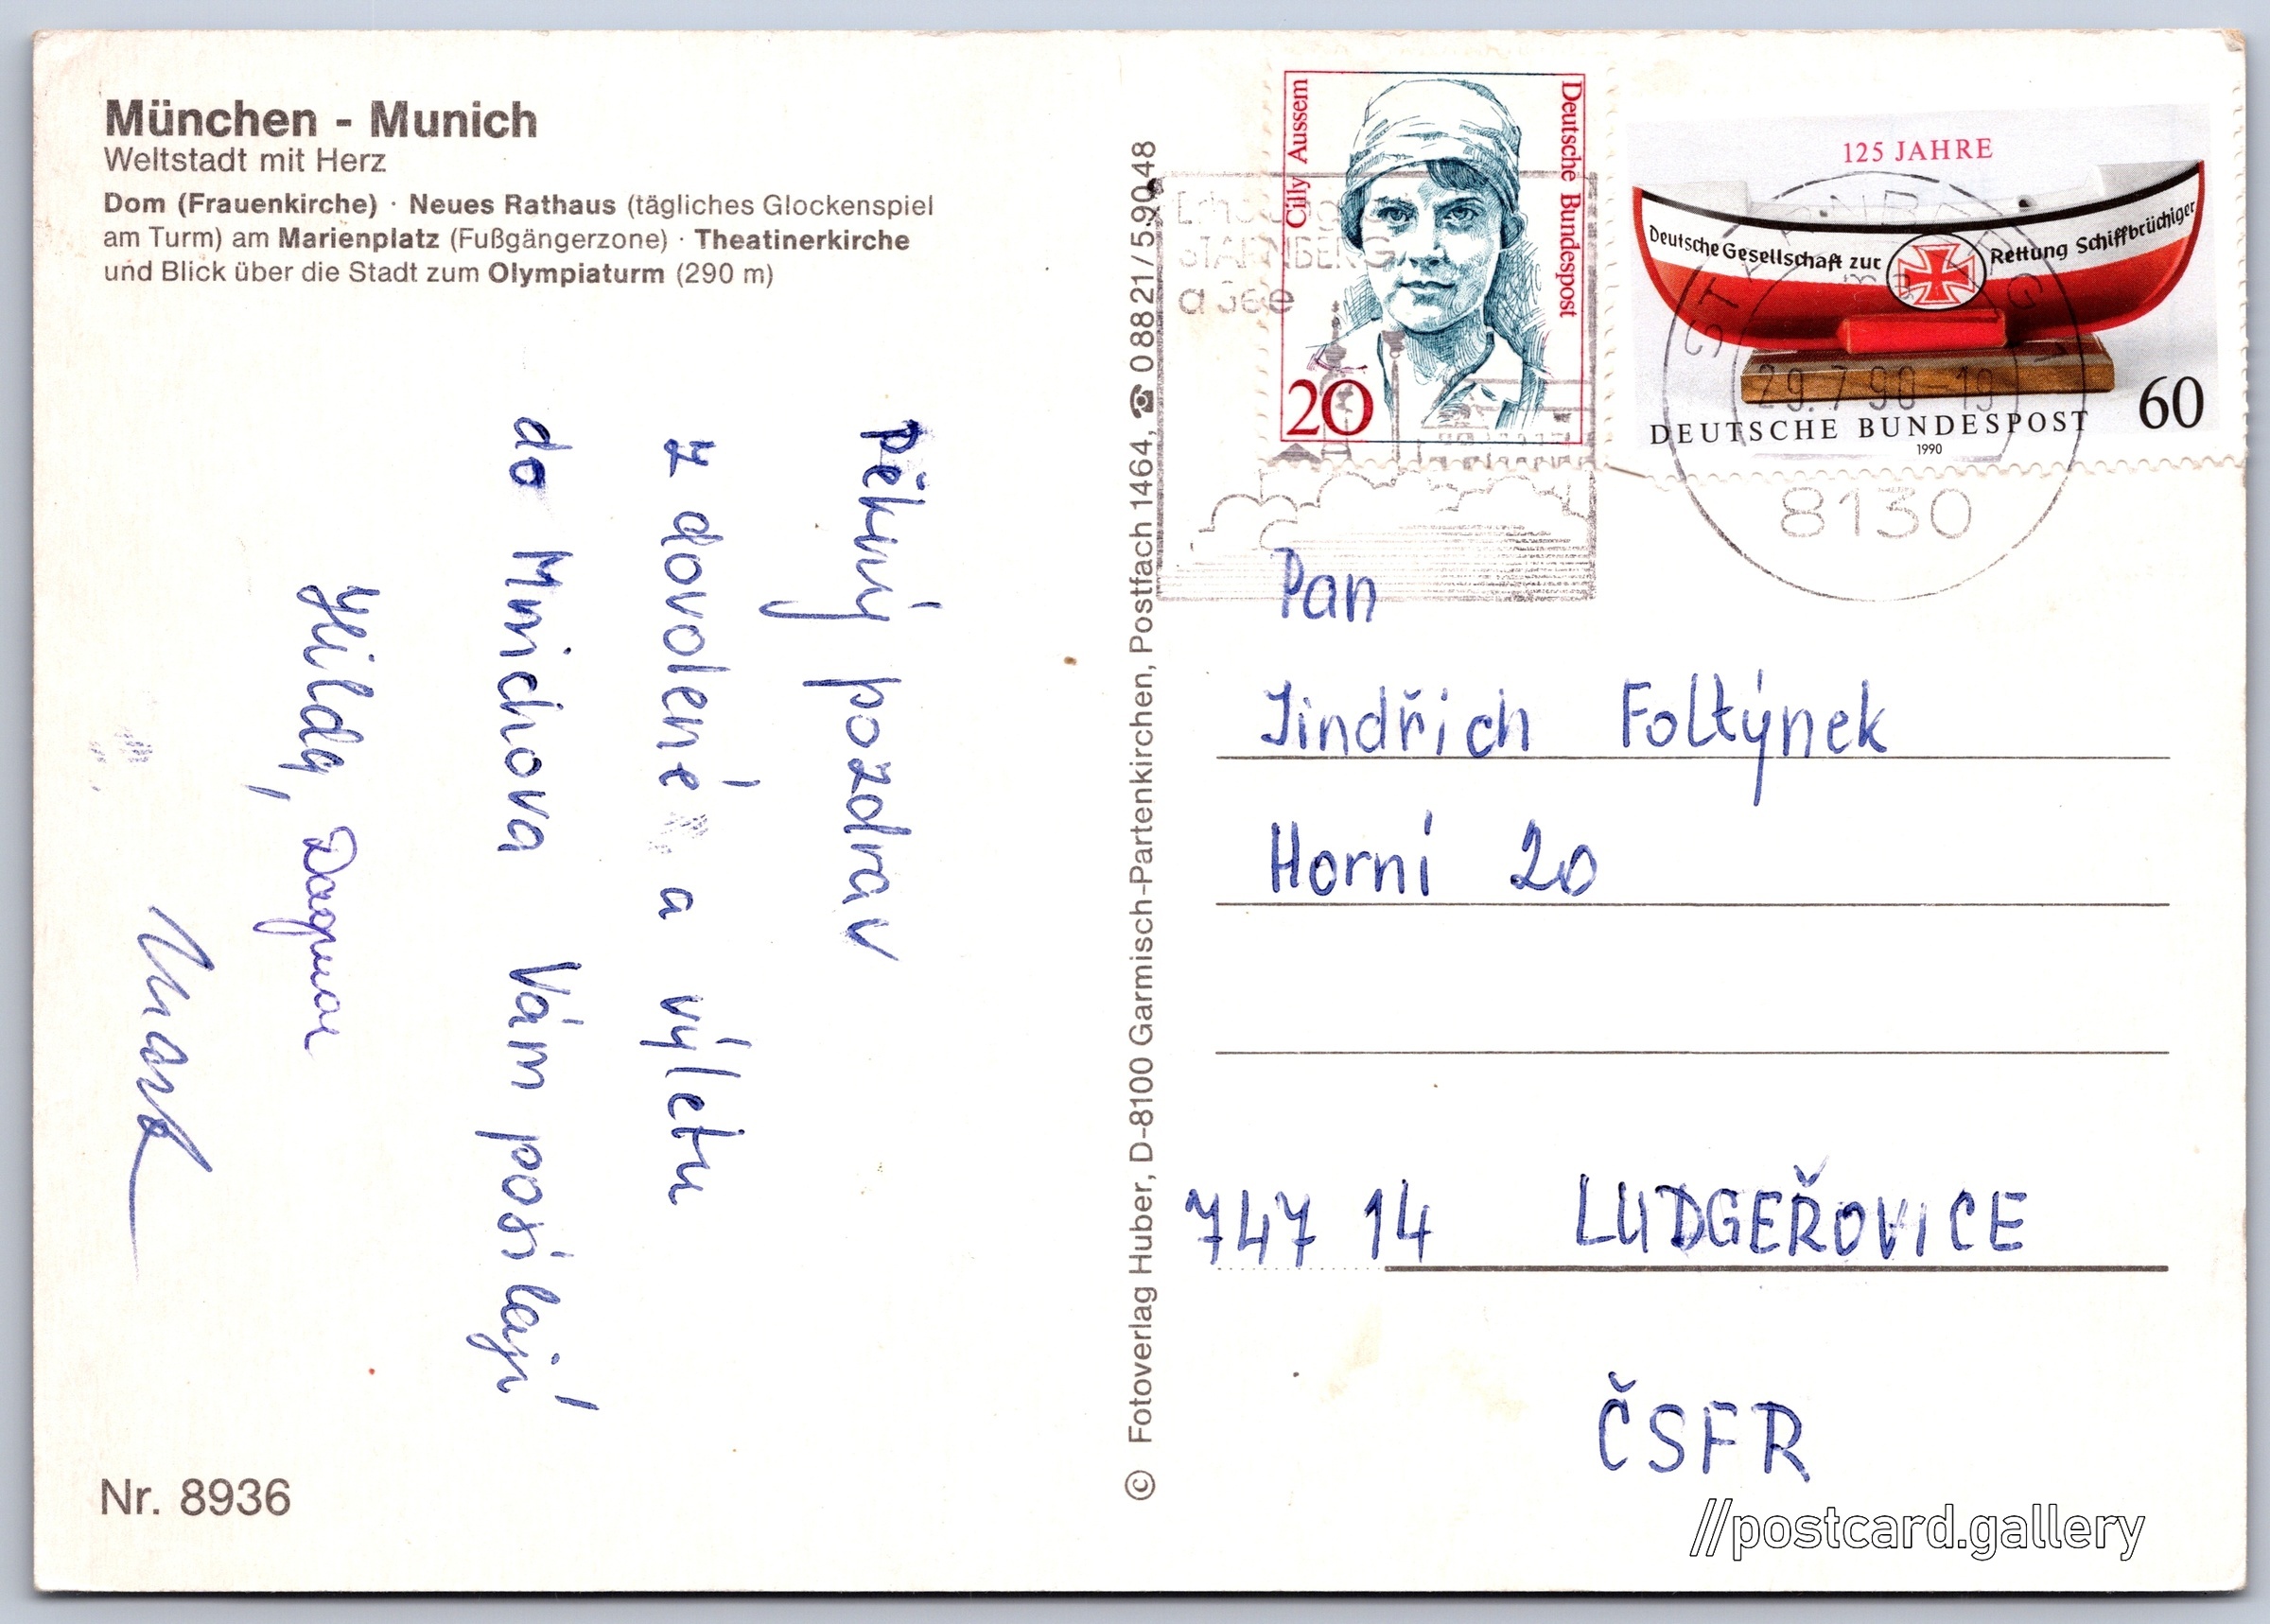 München - Munich
Weltstadt mit Herz
Dom (Frauenkirche) · Neues Rathaus (tägliches Glockenspiel
am Turm) am Marienplatz (Fußgängerzone) · Theatinerkirche
und Blick über die Stadt zum Olympiaturm (290 m)
Pěkný pozdrav
z dovolené a výletu
do Mnichova Vám posílají
Hilda, Dagmar
Nr. 8936
© Fotoverlag Huber, D-8100 Garmisch-Partenkirchen, Postfach 1464, ☎ 0 88 21 / 5 90 48
Cilly Aussem
Deutsche Bundespost
20
125 JAHRE
Deutsche Gesellschaft zur Rettung Schiffbrüchiger
DEUTSCHE BUNDESPOST 60
1990
STARNBERG
a See
STARNBERG 1
29.7.90-19
8130
Pan
Jindřich Foltýnek
Horní 20
747 14 LUDGEŘOVICE
ČSFR
//postcard.gallery